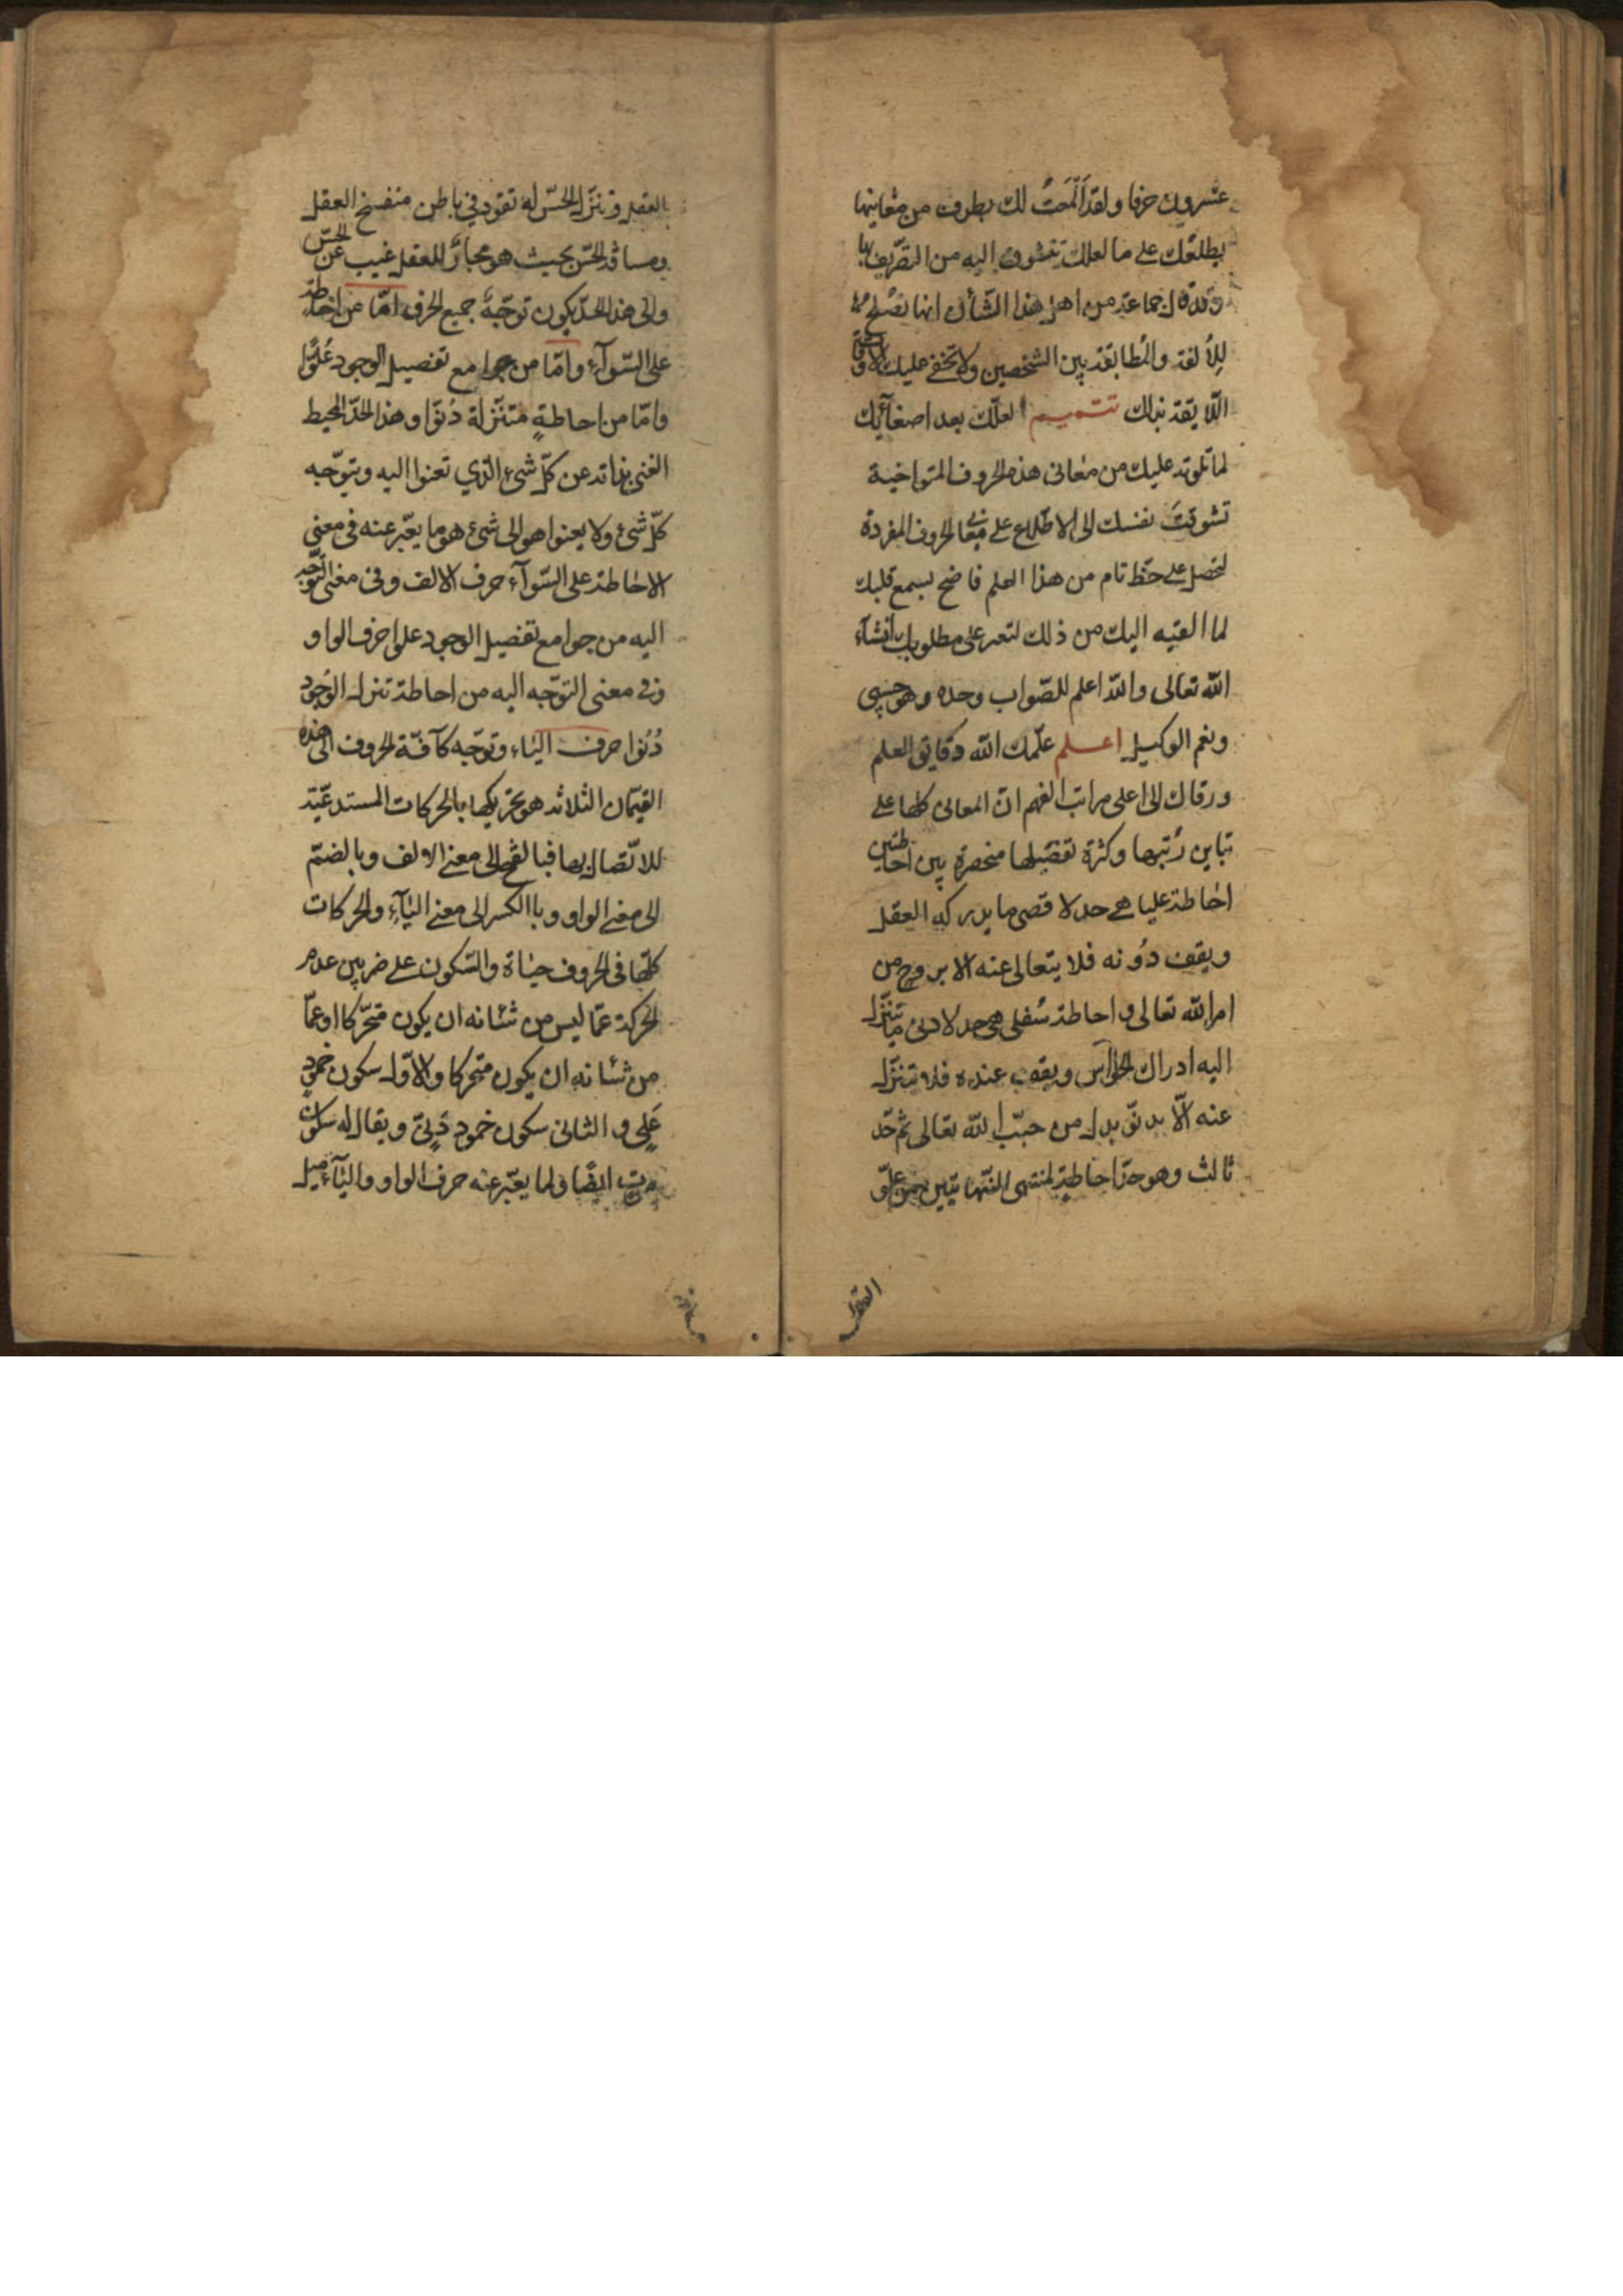 عشرون حرفا ولقد ألمحت لك بطرف من معانيها
يطلعك على ما لعلك تتشوف اليه من التصريف بها
وقد قال جماعة من اهل هذا الشأن انها تصلح
للألفة والمطابقة بين الشخصين ولا تخفى عليك الاوقات
اللايقة بذلك تتميم لعلك بعد اصغآئك
لما تلوته عليك من معانى هذه الحروف المتواخية
تشوقت نفسك الى الاطلاع على معانى الحروف المفردة
لتحصل على حظ تام من هذا العلم فاضح بسمع قلبك
لما القيه اليك من ذلك لتعثر على مطلوبك انشآء
الله تعالى والله اعلم للصواب وحده وهو حسبى
ونعم الوكيل اعلم علمك الله دقايق العلم
ورقاك الى اعلى مراتب الفهم ان المعانى كلها على
تباين رتبها وكثرة تفصيلها منحصرة بين احاطتين
احاطة عليا هى حد لاقصى ما يدركه العقل
ويقف دونه فلا يتعالى عنه الا بروح من
امر الله تعالى واحاطة سفلى هى حد لادنى ما يتنزل
اليه ادراك الحواس ويقف عنده فلا تتنزل
عنه الا بدنو بدل من حب الله تعالى ثم حد
ثالث وهو حد احاطة لمنتهى النهايتين من علو
العقل
بالعقل وتنزل الحس له تقود فى باطن منفسخ العقل
ومسافة الحس بحيث هو مجاز للعقل غيب عن الحس
والى هذا الحد يكون توجه جميع الحرف اما من احاطة
على السوآء واما من جوامع تفصيل الوجود علوا
واما من احاطة متنزلة دنوا وهذا الحد المحيط
الغنى بذاته عن كل شئ الذي تعنوا اليه ويتوجه
كل شئ ولا يعنوا هو الى شئ هو ما يعبر عنه فى معنى
الاحاطة على السوآء حرف الالف وفى معنى التوجه
اليه من جوامع تفصيل الوجود علوا حرف الواو
وفى معنى التوجه اليه من احاطة تنزل الوجود
دنوا حرف اليآء وتوجه كآفة الحروف الى هذه
القيمان الثلاثة هو تحريكها بالحركات المستدعية
للاتصال بها فبالفتح الى معنى الالف وبالضم
الى معنى الواو وبا الكسر الى معنى اليآء والحركات
كلها فى الحروف حياة والسكون على ضربين عدم
الحركة عما ليس من شانه ان يكون متحركا او عما
من شانه ان يكون متحركا والاول سكون خمود
على والثانى سكون خمود دنى ويقال له سكون
ايضا ولما يعبر عنه حرف الواو واليآء ميل